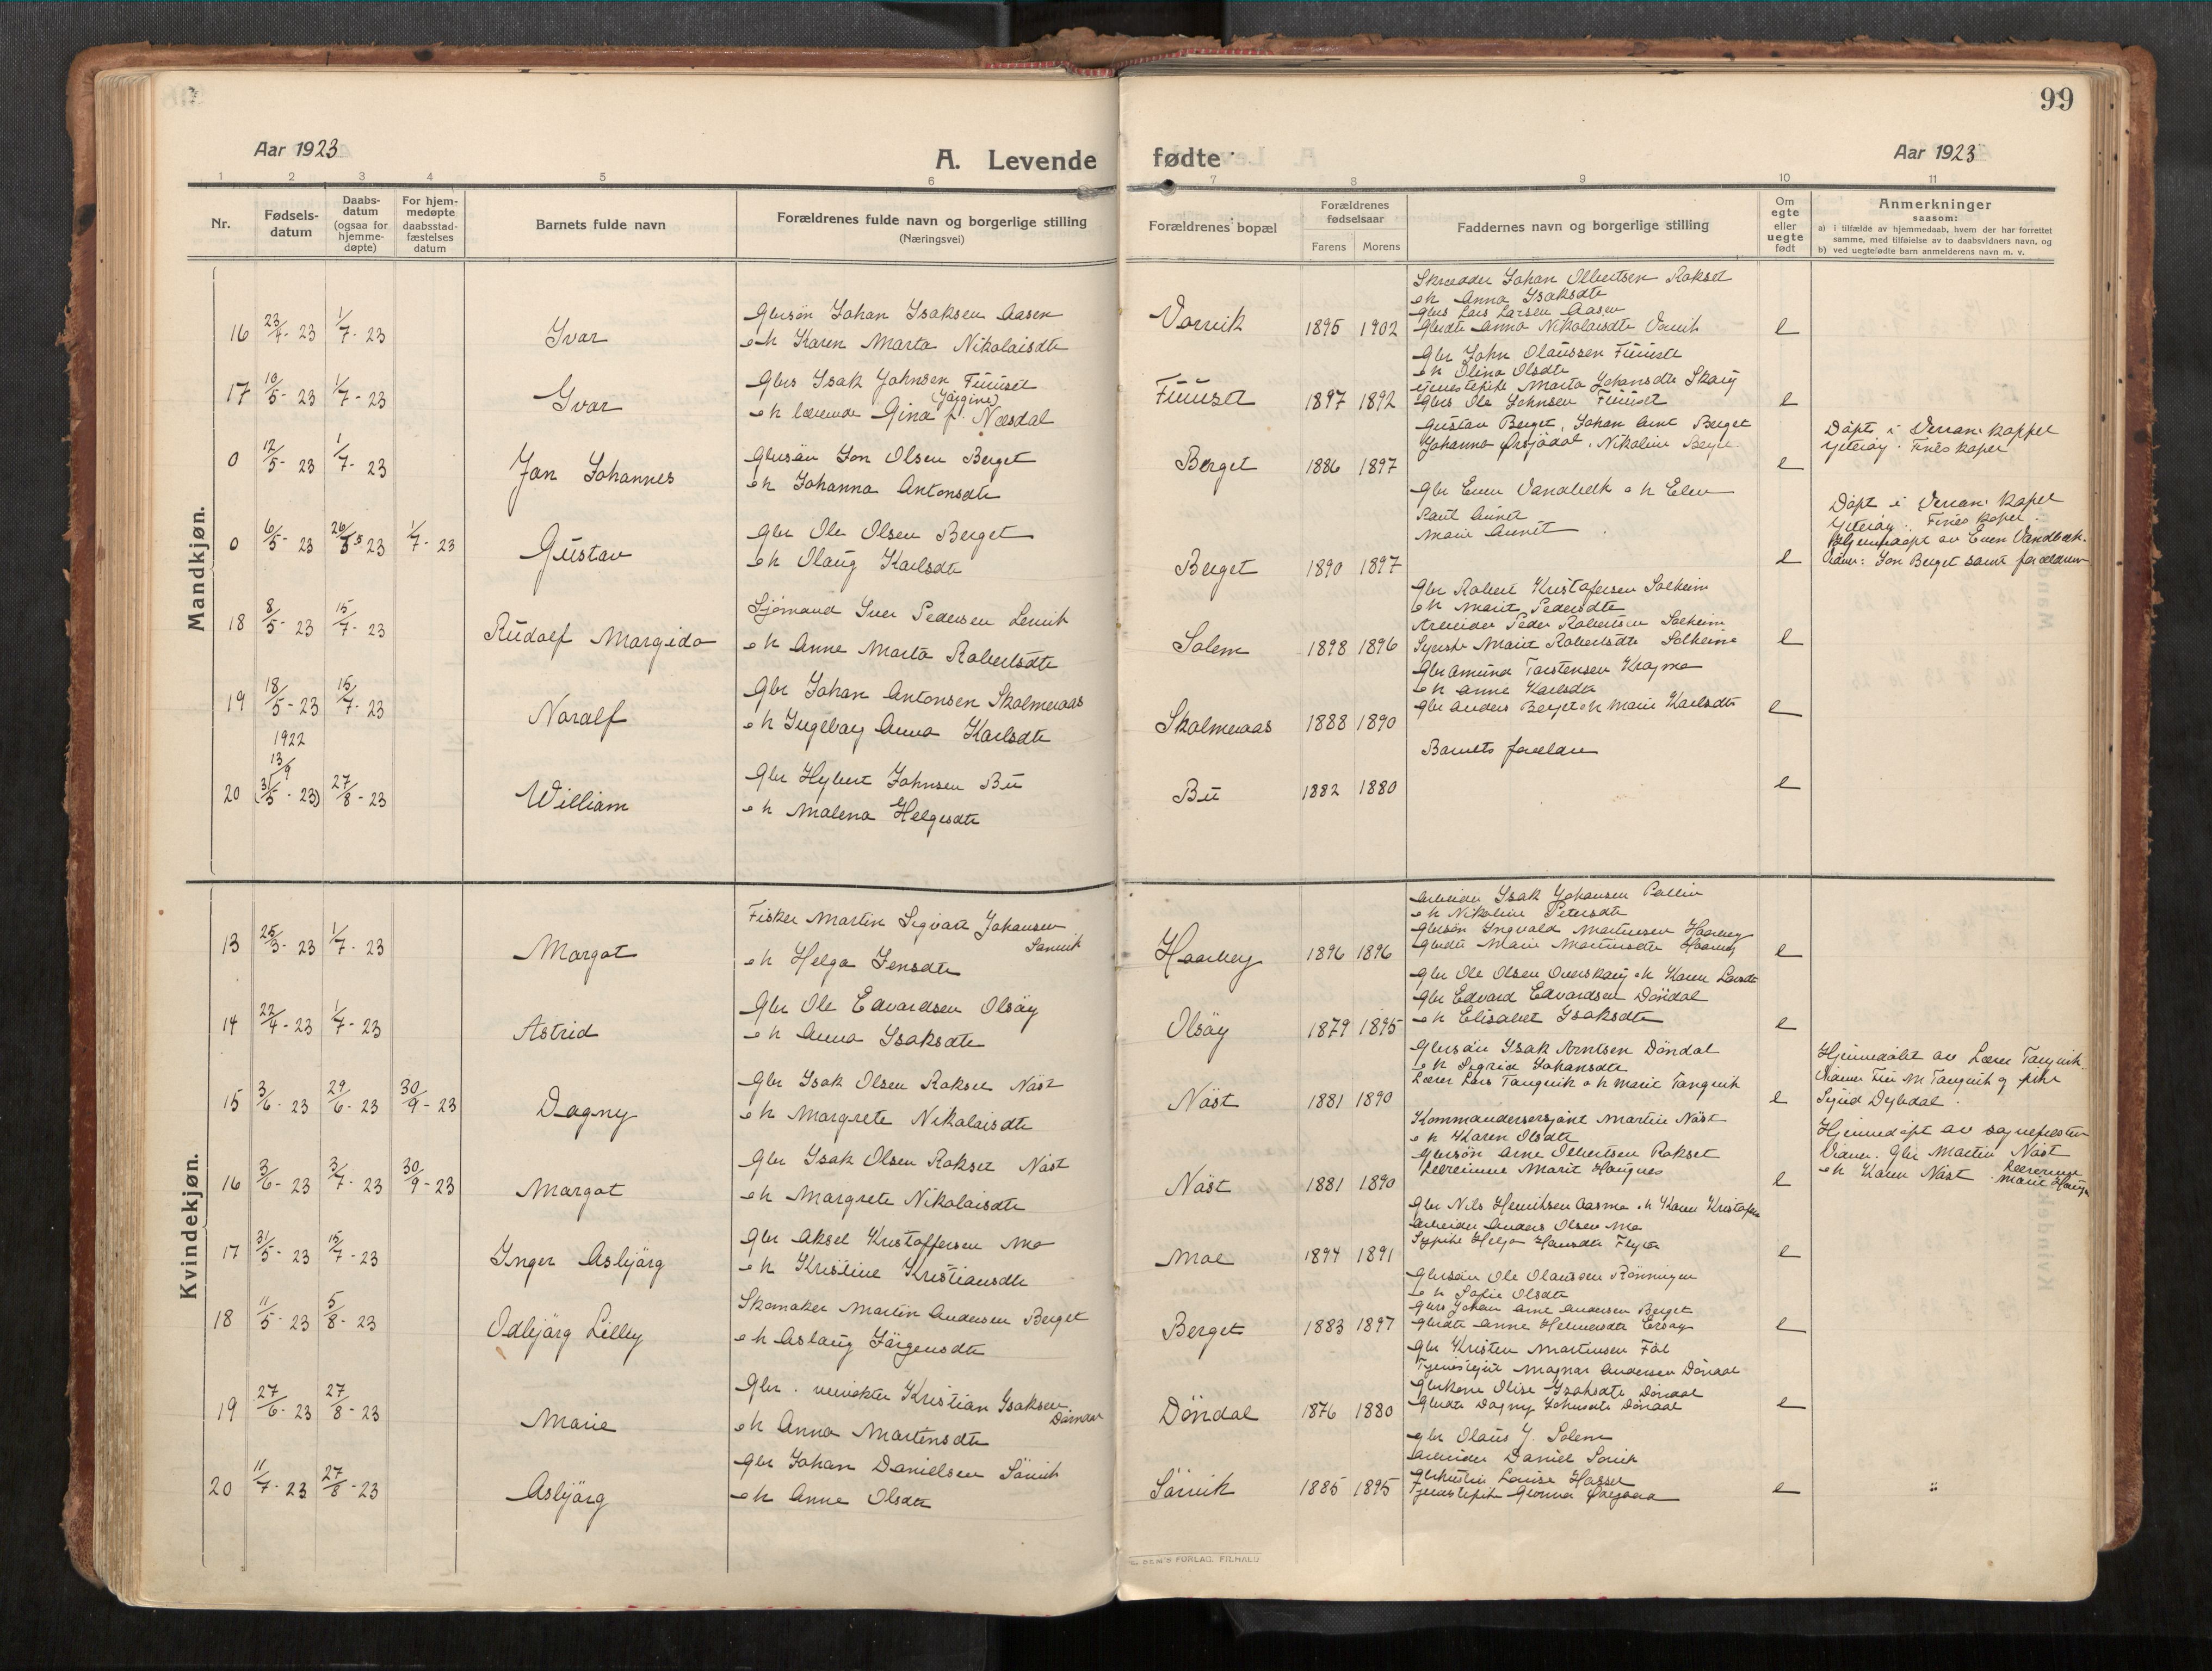 99
Aar 1923
A. Levende fødte
Aar 1923
1 2 3 4 5 6 7 8 9 10 11
Nr.
Fødsels-
datum
Daabs-
datum
(ogsaa for
hjemme-
døpte)
For hjem-
medøpte
daabsstad-
fæstelses
datum
Barnets fulde navn
Forældrenes fulde navn og borgerlige stilling
(Næringsvei)
Forældrenes bopæl
Forældrenes
fødselsaar
Farens Morens
Faddernes navn og borgerlige stilling
Om
egte
eller
uegte
født
Anmerkninger
saasom:
a) i tilfælde av hjemmedaab, hvem der har forrettet
samme, med tilføielse av to daabsvidners navn, og
b) ved uegtefødte barn anmelderens navn m. v.
Mandkjøn.
16 23/4-23 1/7-23 Ivar
Gbrsön Johan Isaksen Aasen
o h Karen Marta Nikolaisdtr
Vorvik 1895 1902
Johan Olbertsen Rokset
o h Anna Isaksdtr
Gbrs Lars Larsen Aasen
Gbrdtr Anna Nikolaisdtr Vorvik
e
17 10/5-23 1/7-23 Ivar
Gbrs Isak Johnsen Fuuset
(Jörgine)
o h lærerinde Gina f. Næsdal
Fuuset 1897 1892
Gbr John Olaussen Fuuset
o h Olina Olsdtr
Marta Johansdtr Skaug
Gbrs Ole Johnsen Fuuset
e
0 12/5-23 1/7-23 Jan Johannes
Gbrsön Jon Olsen Berget
o h Johanna Antonsdtr
Berget 1886 1897
Gustav Berget, Johan Arnt Berget
Johanna Ørsjødal, Nikoline Berget
e
Döpt i Verran kappel
Ytteröy. Fines kapel
0 6/5-23 26/5 23 1/7-23 Gustav
Gbr Ole Olsen Berget
o h Olaug Karlsdtr
Berget 1890 1897
Gbr Even Vandbekk o h Elen
Marie
e
Döpt i Verran kapel
Ytteröy. Fines kapel.
Hjemmedöpt av Even Vandbæk.
Vidner: Jon Berget samt forældrene
18 8/5-23 15/7-23 Rudolf Margido
Sjömand Iver Pedersen Lervik
o h Anne Marta Robertsdtr
Solem 1898 1896
Gbr Robert Kristofersen Solheim
o h Marit Pedersdtr
Arbeider Peder Robertsen Solheim
Syerske Marit Robertsdtr Solheim
e
19 18/5-23 15/7-23 Noralf
Gbr Johan Antonsen Skolmeraas
o h Ingeborg Anna Karlsdtr
Skolmeraas 1888 1890
Gbr Amund Torstensen Kragmo
o h Anne Karlsdtr
Gbr Anders Berget o h Marie Karlsdtr
e
1922
13/9
20 (31/5-23) 27/8-23 William
Gbr Hybert Johnsen Bu
o h Malena Helgesdtr
Bu 1882 1880
Barnets forældre
e
Kvindekjøn.
13 25/3-23 1/7-23 Margot
Fisker Martin Sigvart Johansen
Sørvik
o h Helga Jensdtr
Haarberg 1896 1896
Arbeider Isak Johansen
o h Nikoline Petersdtr
Gbrsön Ingvald Martinsen Haarberg
Gbrdtr Marie Martinsdtr Haarberg
e
14 22/4-23 1/7-23 Astrid
Gbr Ole Edvardsen Olsöy
o h Anna Isaksdtr
Olsöy 1879 1895
Gbr Ole Olsen Overskaug o h Karen Larsdtr
Gbr Edvard Edvardsen Döndal
o h Elisabet Isaksdtr
e
15 3/6-23 29/6-23 30/9-23 Dagny
Gbr Isak Olsen Rokset Näst
o h Margrete Nikolaisdtr
Näst 1881 1890
Gbrsön Isak Arntsen Döndal
o h Sigrid Johansdtr
Lærer Lars Tangvik o h Marie Tangvik
e
Hjemmedöbt av Lærer Tangvik.
Vidner Fru M Tangvik og
16 3/6-23 3/7-23 30/9-23 Margot
Gbr Isak Olsen Rokset Näst
o h Margrete Nikolaisdtr
Näst 1881 1890
Kommandersersjant Martin Näst
o h Karen Olsdtr
Gbrsön Arne Olbertsen Rokset
Lærerinne Marit Haugnes
e
Hjemmedöpt av sognepresten
Vidner. Gbr Martin Näst
o h Karen Näst. Lærerinne
17 31/5-23 15/7-23 Inger Asbjörg
Gbr Aksel Kristoffersen Mo
o h Kristine Kristiansdtr
Moe 1894 1891
Gbr Nils Henriksen Aasmo o h Karen
Arbeider Anders Olsen Mo
Helga Hansdtr
e
18 11/5-23 5/8-23 Odbjörg Lilly
Skomaker Martin Andersen Berget
o h Aslaug Jörgensdtr
Berget 1883 1897
Gbrsön Ole Olausen Rönningen
o h Sofie Olsdtr
Gbrs Johan Arne Andersen Berget
Gbrdtr Anne Helmersdtr
e
19 27/6-23 27/8-23 Marie
Gbr. Kristian Isaksen
Döndal
o h Anna Martensdtr
Döndal 1876 1880
Gbr Kristen Martinsen
Magnar Andersen Döndal
Gbrkone Olise Isaksdtr Döndal
Gbrdtr Dagny Johnsdtr Döndal
e
20 11/7-23 27/8-23 Asbjörg
Gbr Johan Danielsen Sörvik
o h Anne Olsdtr
Sörvik 1885 1895
Gbr Olaus J. Solem
Arbeider Daniel Sörvik
Louise Hassel
e